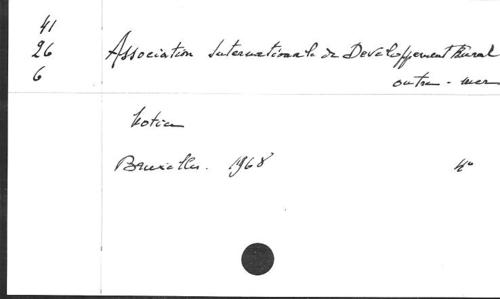 41
26 Association Internationale de Developpement Rural
6 outre-mer
Notice
Bruxelles. 1968 4°